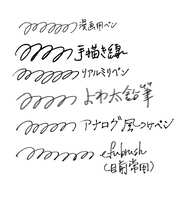 漫画用ペン
手描き線
リアルミリペン
よわ太鉛筆
アナログ風つけペン
efubrush
(日常常用)